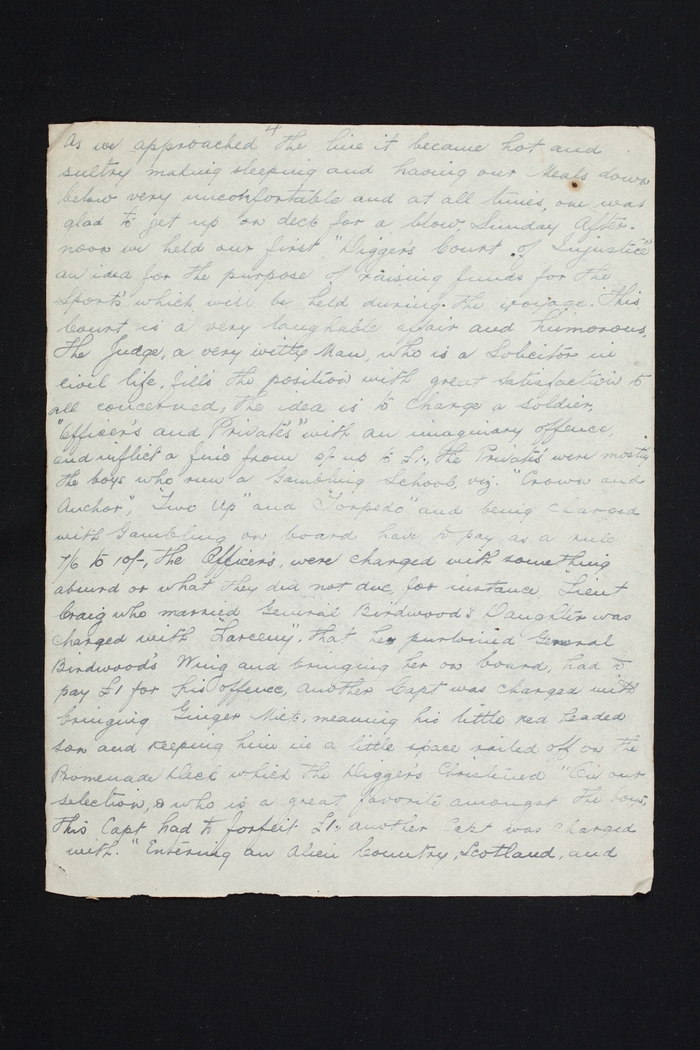 4
As we approached the line it became hot and
sultry making sleeping and having our Meals down
below very uncomfortable and at all times, one was
glad to get up on deck for a blow, Sunday After-
noon we held our first "Digger's Court of Injustice"
an idea for the purpose of raising funds for the
Sports' which will be held during the voyage. This
Court is a very laughable affair and humorous,
The Judge, a very witty Man, who is a Solicitor in
civil life, fills the position with great satisfaction to
all concerned, the idea is to charge a soldier,
"Officer's and Private's" with an imaginary offence,
and inflict a fine from 5/- up to £1., the Private's were mostly
the boys who run a Gambling School, viz. "Crown and
Anchor", "Two Up" and "Torpedo" and being charged
with Gambling on board have to pay as a rule
7/6 to 10/-, the Officer's, were charged with something
absurd or what they did not do, for instance, "Lieut
Craig who married General Birdwood's Daughter was
charged with "Larceny". that he purloined General
Birdwood's Wing and bringing her on board, had to
pay £1 for his offence, another Capt was charged with
bringing Ginger Mick, meaning his little red headed
son and keeping him in a little space railed off on the
Promenade Deck which the Digger's Christened "On our
selection, & who is a great favorite amongst the boys,
this Capt had to forfeit £1., another Capt was charged
with. "Entering an Alien Country, Scotland, and